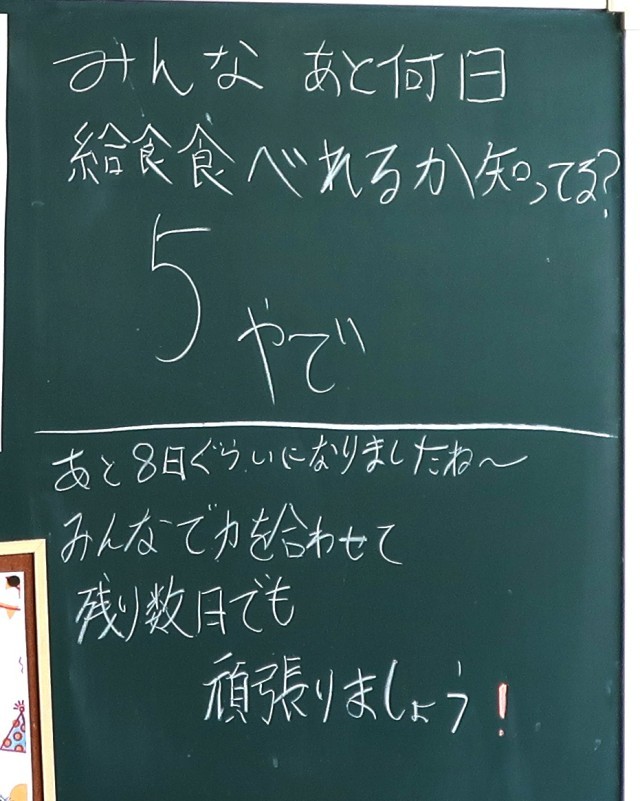 みんな あと何日
給食食べれるか知ってる?
5
やで
あと8日ぐらいになりましたね〜
みんなで力を合わせて
残り数日でも
頑張りましょう!